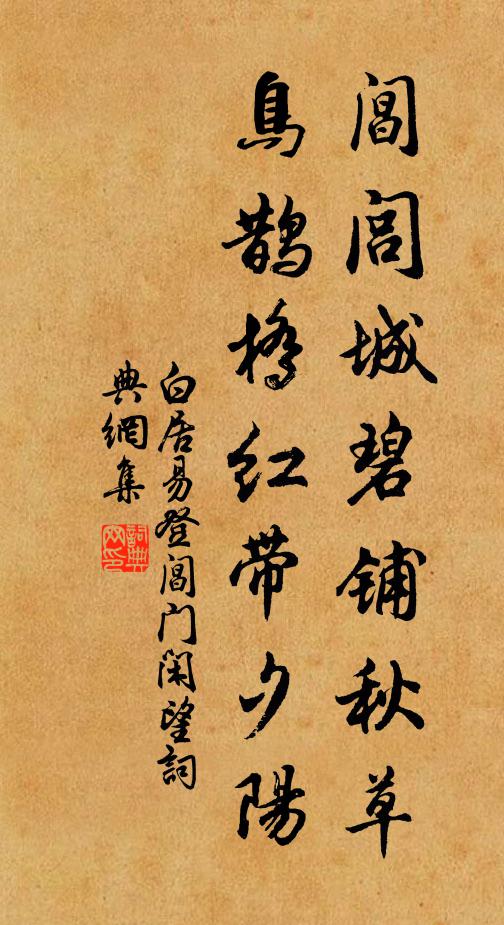 閶閭城碧鋪秋草
烏鵲橋紅帶夕陽
白居易登閶門閑望詞
典網集
詞典网印